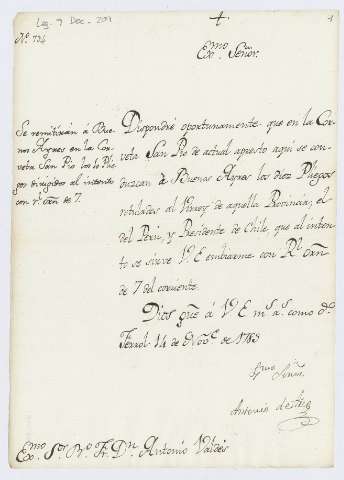 Leg. 7 Doc. 201
1
Nº 734
Exmo Señor.
Se remitirán à Bue
nos Ayres en la Cor
veta San Pio los 10 Plie
gos dirigidos al intento
con rl orñ de 7.
Dispondré oportunamente que en la Cor
veta San Pio de actual apresto aquí se con
duzcan à Buenos Ayres los diez Pliegos
rotulados al Virrey de aquella Provincia, el
del Perú, y Presidente de Chile, que al inten
to se sirve V.E embiarme con Rl orñ
de 7 del corriente.
Dios gue à V.E ms as como do
Ferrol 14 de Novre de 1783
Exmo Señor.
Antonio de
Exmo Sor Bo Fr. Dn Antonio Valdés